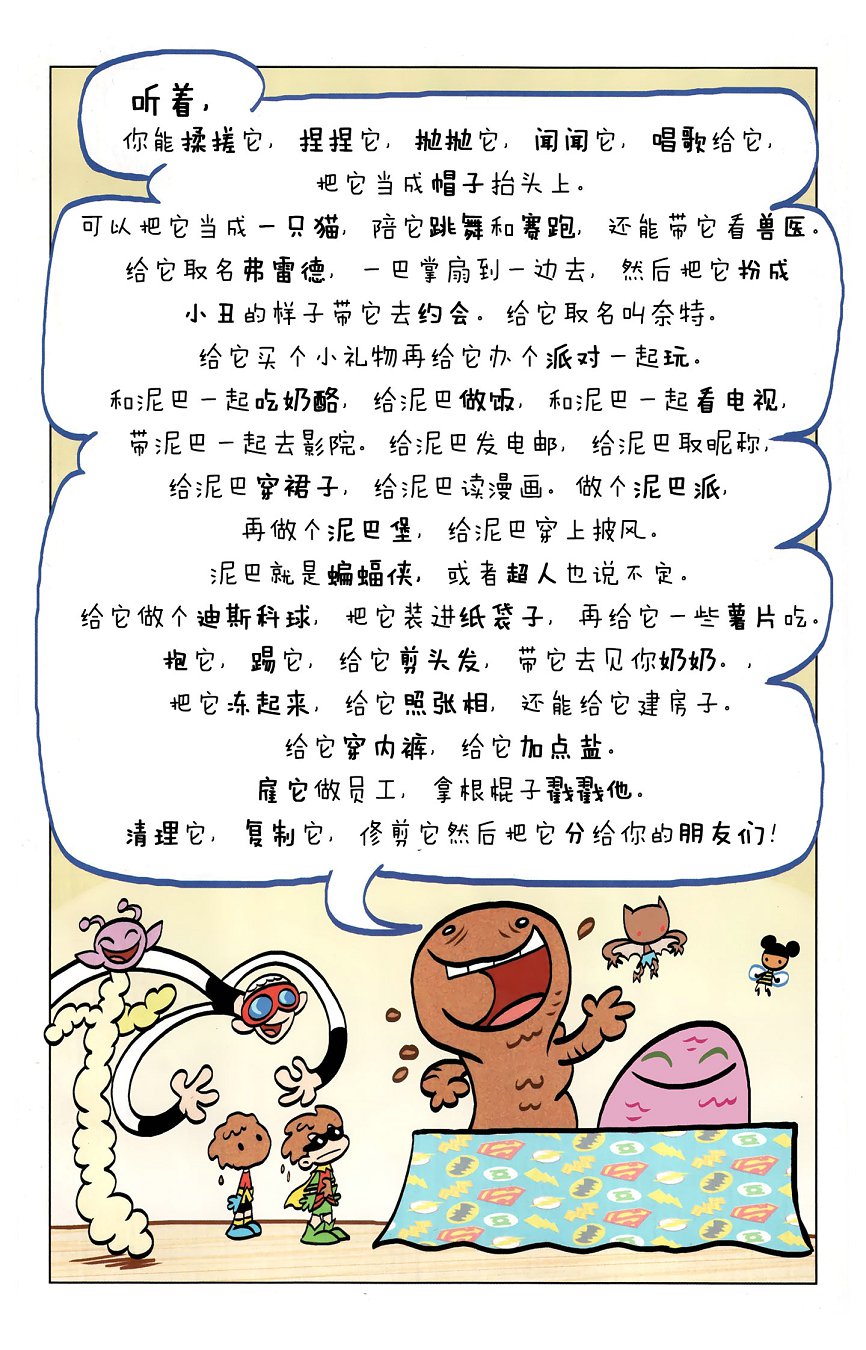 听着,
你能揉搓它, 捏捏它, 抛抛它, 闻闻它, 唱歌给它,
把它当成帽子抬头上。
可以把它当成一只猫, 陪它跳舞和赛跑, 还能带它看兽医。
给它取名弗雷德, 一巴掌扇到一边去, 然后把它扮成
小丑的样子带它去约会。给它取名叫奈特。
给它买个小礼物再给它办个派对一起玩。
和泥巴一起吃奶酪, 给泥巴做饭, 和泥巴一起看电视,
带泥巴一起去影院。给泥巴发电邮, 给泥巴取昵称,
给泥巴穿裙子, 给泥巴读漫画。做个泥巴派,
再做个泥巴堡, 给泥巴穿上披风。
泥巴就是蝙蝠侠, 或者超人也说不定。
给它做个迪斯科球, 把它装进纸袋子, 再给它一些薯片吃。
抱它, 踢它, 给它剪头发, 带它去见你奶奶。,
把它冻起来, 给它照张相, 还能给它建房子。
给它穿内裤, 给它加点盐。
雇它做员工, 拿根棍子戳戳他。
清理它, 复制它, 修剪它然后把它分给你的朋友们!